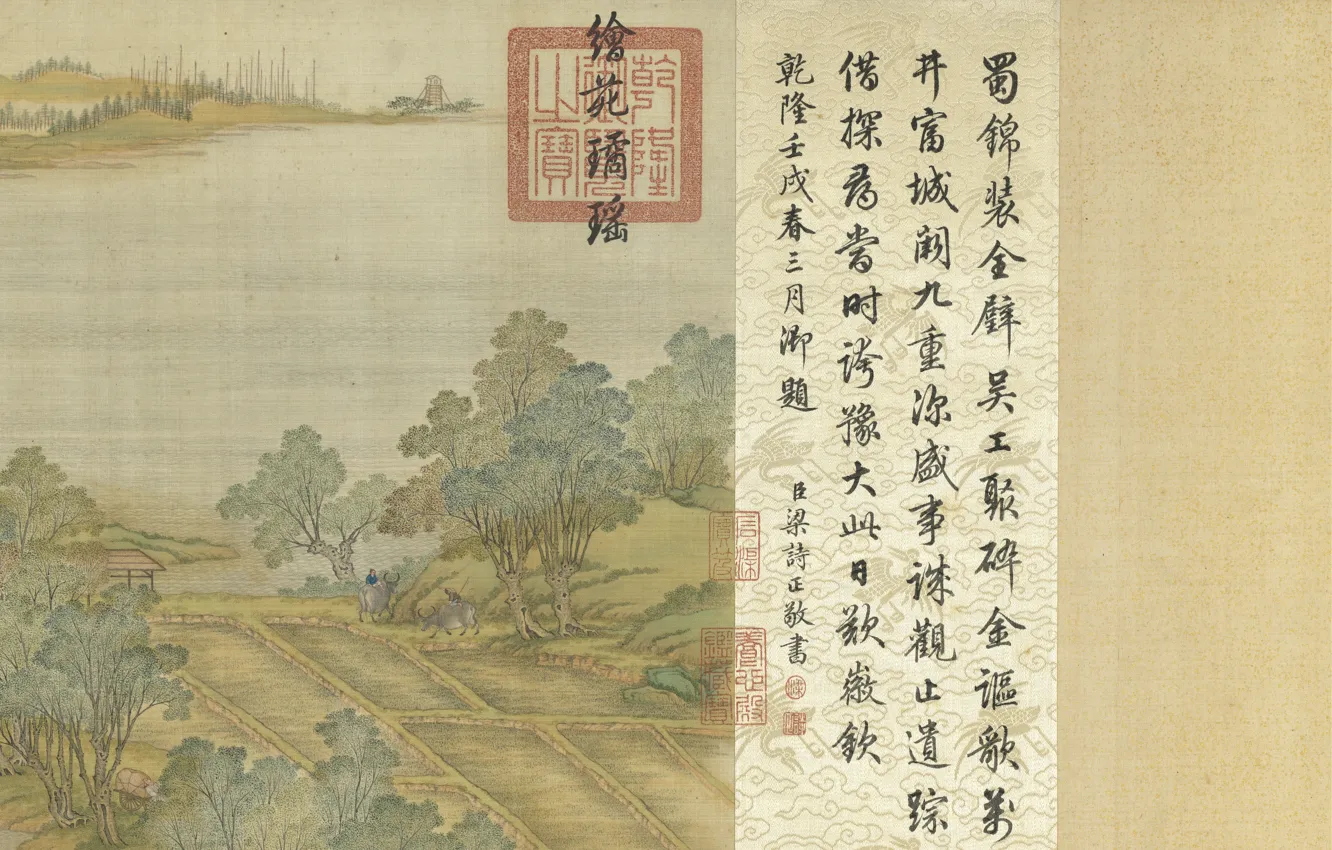 蜀錦装全壁吴工聚碎金謳歌萬
井富城闕九重深盛事誠觀止遺踪
借探尋當时誇豫大此日歎徽欽
乾隆壬戌春三月御題
臣梁詩正敬書
繪苑璚瑶
乾隆御覽之寶